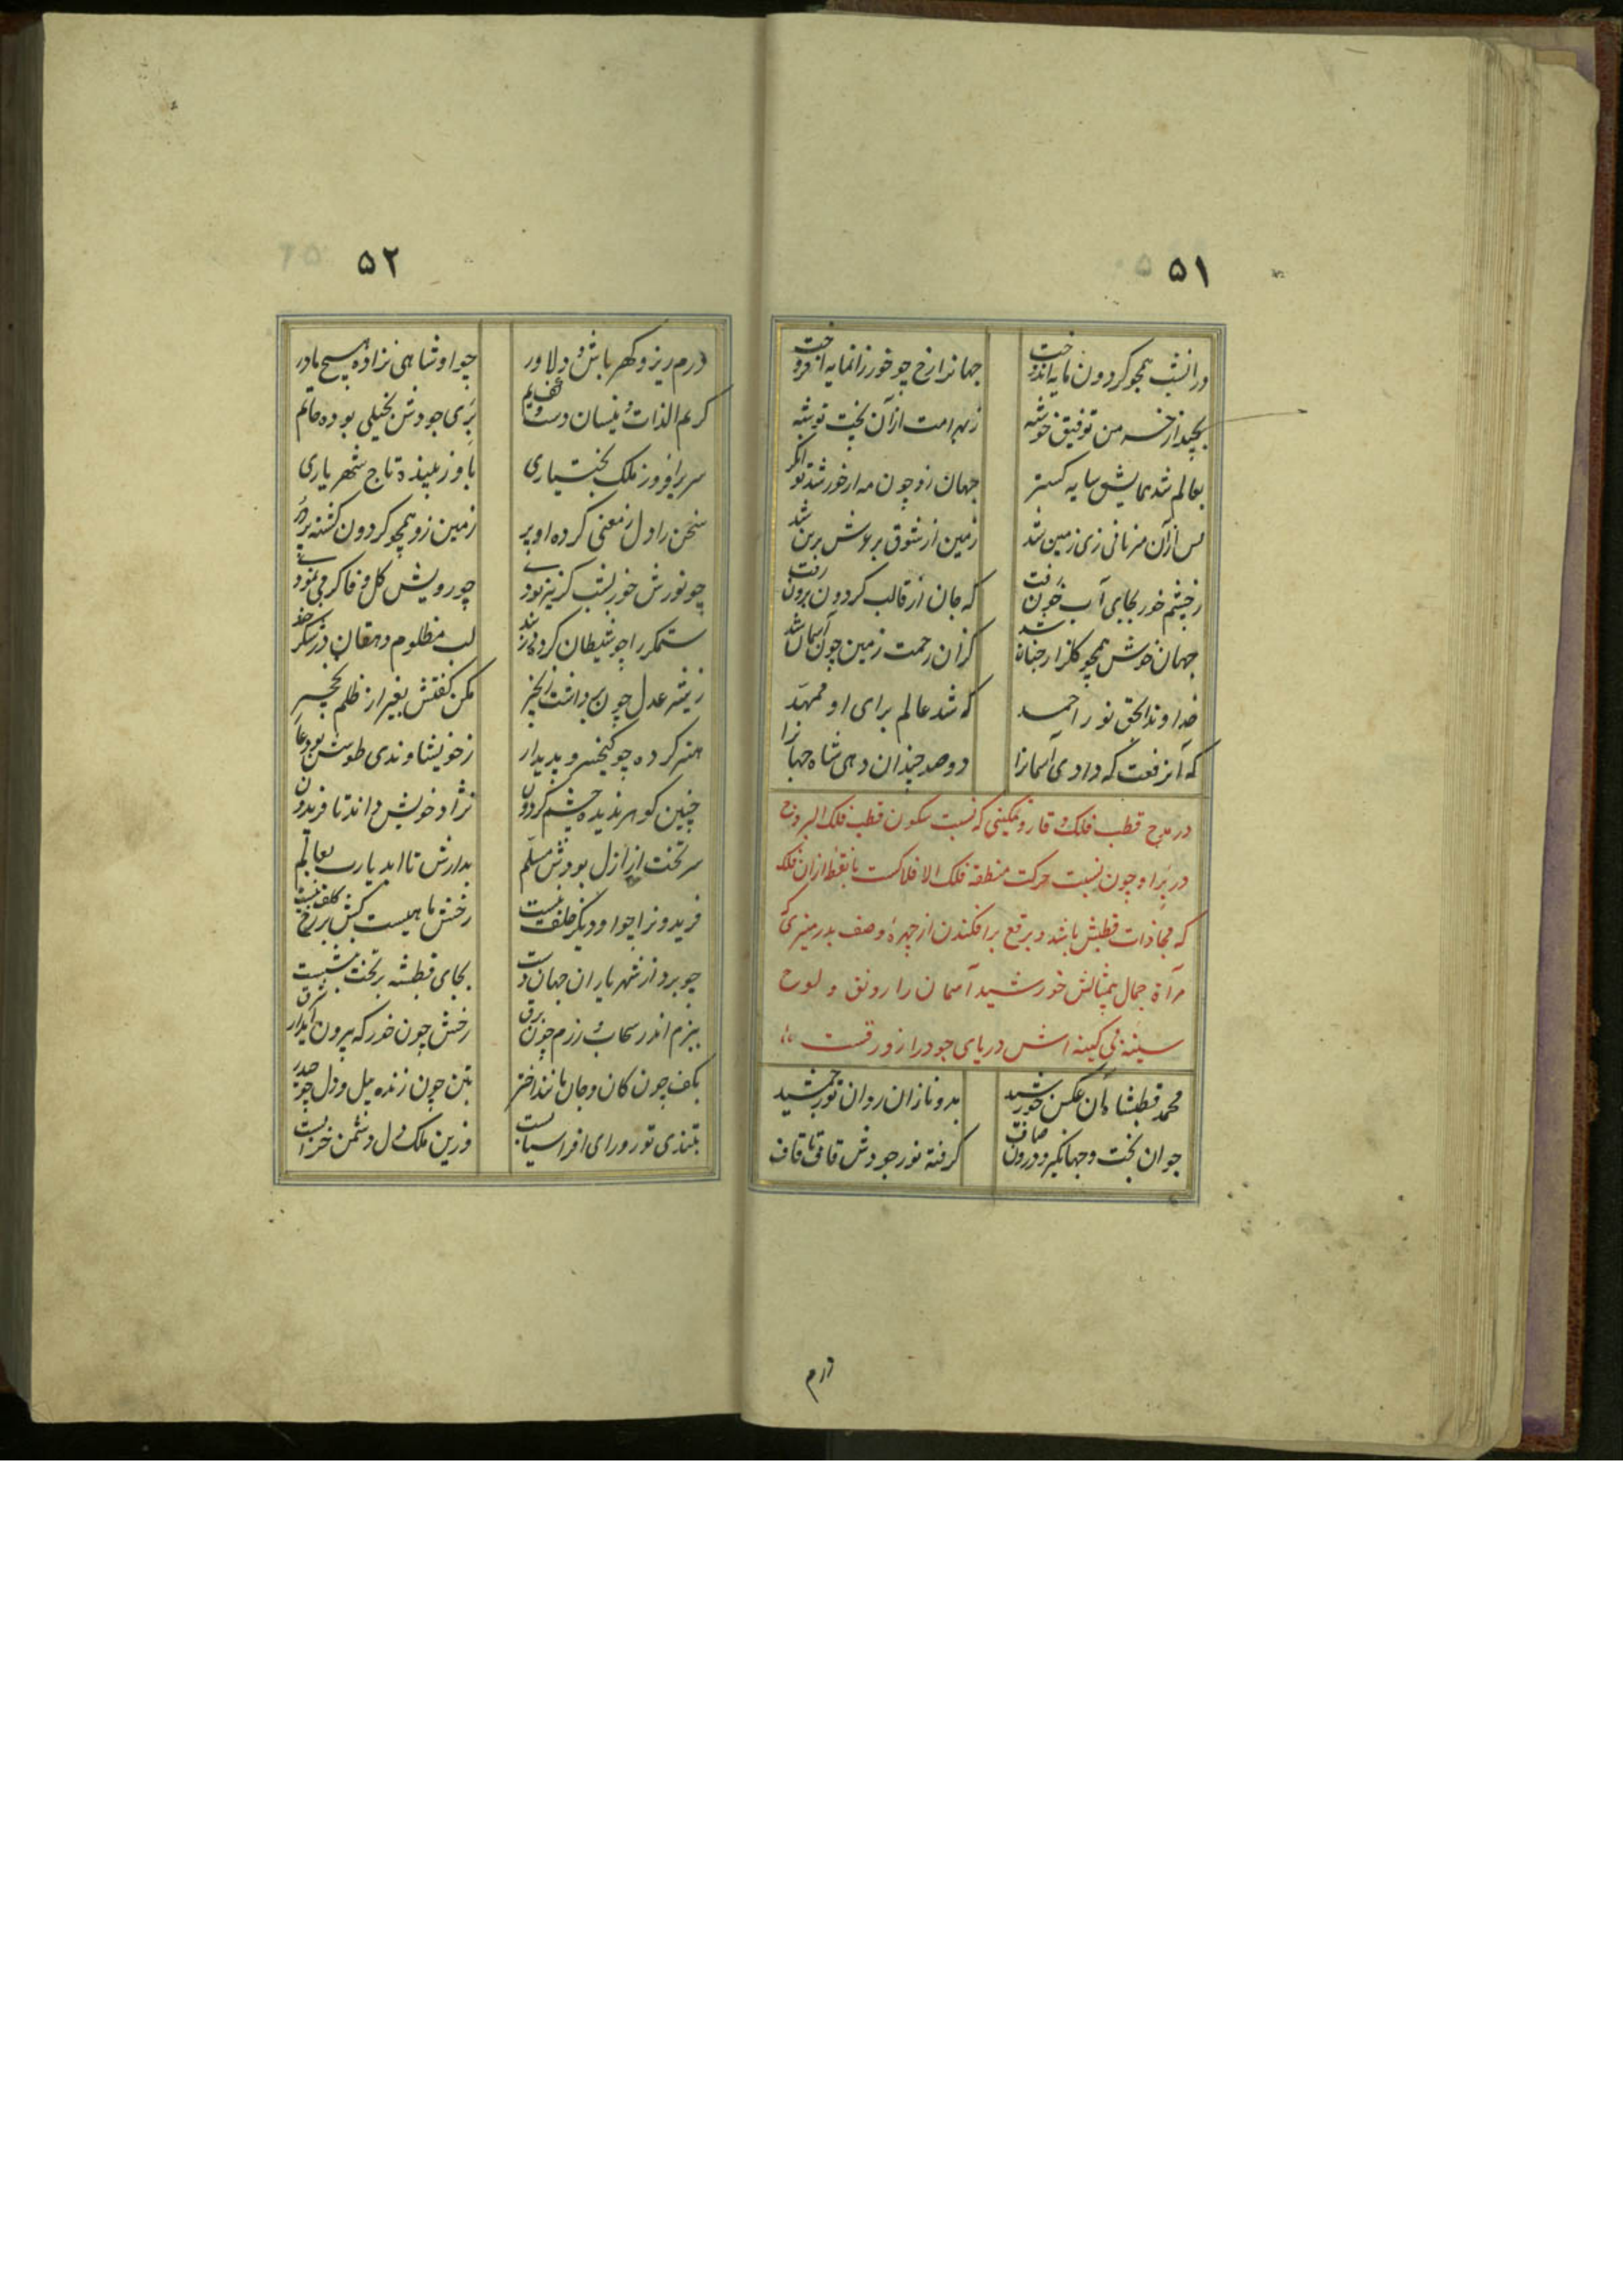 ۵۱
در انشب همچو کردون مایه اندوخت جهانرا رخ چو خور زانمایه افروخت
بچید از خرمن توفیق خوشه ز بهر امت از آن بخت توشه
بعالم شد همایش سایه کستر جهان زو چون مه از خورشد توانکر
پس از آن مژدمانی زی زمین شد زمین از شوق بر عرش برین شد
ز چشم خور بجای آب خون رفت که جان از قالب کردون برون رفت
جهان خوش همچو کلزار جنان شد کزان رحمت زمین چون آسمان شد
خداوندا بحق نور احمد که شد عالم برای او ممهد
که آنرفعت که دادی آسمانرا دو صد چندان دهی شاه جهانرا
در مدح قطب فلک وقار و تمکینی که نسبت سکون قطب فلک البروج
در بر او چون نسبت حرکت منطقه فلک الافلاکست با نقطه از ان فلک
که محاذات قطبش باشد و برقع برافکندن از چهره وصف بدر منیری که
مرآة جمال بیمثالش خورشید آسمان را رونق و لوح
سینه بی کینه اش دریای جود را زورقست
محمد قطبشاه آن عکس خورشید بدو نازان روان تور جمشید
جوان بخت و جهانکیر و درون صاف کرفته نور جودش قاف تا قاف
درم
۵۲
درم ریز و کهر باش و دلاور چو او شاهی نزاده هیچ مادر
کریم الذات و نیسان دست و افخم بری جودش بخیلی بوده حاتم
سریر افروز ملک بختیاری باو زیبنده تاج شهریاری
سخن را دل ز معنی کرده او پر زمین زو همچو کردون کشته پر در
چو نورش خور بشب کر نیز بودی چو رویش کل وفا کر می نمودی
ستمکر را چو شیطان کرد در بند لب مظلوم و دهقان در شکر خند
ز بیشه عدل چون برداشت زنجیر مکن کفتش بغیر از ظلم نخجیر
هنر کرده چو کیخسرو پدیدار ز خویشاوندی طوسش بود عار
چنین کوهر ندیده چشم کردون نژاد خویش داند تا فریدون
سر تخت از ازل بودش مسلم بدارش تا ابد یا رب بعالم
فریدونرا چو او دیکر خلف نیست رخش ماهیست کش بر رخ کلف نیست
چو برد از شهریاران جهان دست بجای قطبشه بر تخت بنشست
ببزم اندر سحاب و رزم چون برق رخش چون خور که بیرون آید از شرق
بکف چون کان و جان مانند اختر بتن چون زنده پیل و دل چو حیدر
بتندی تور و رای افراسیابست وزین ملک دل دشمن خرابست